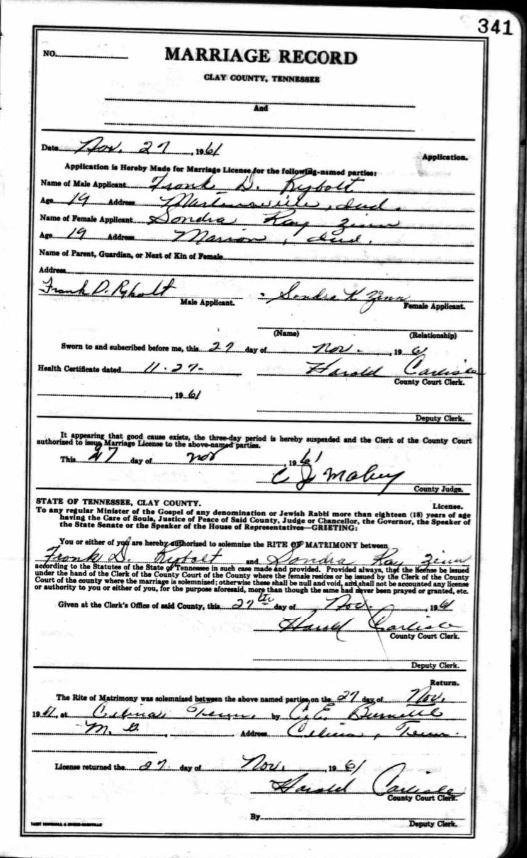 341
NO.
MARRIAGE RECORD
CLAY COUNTY, TENNESSEE
And
Date Nov. 27, 1961 Application.
Application is Hereby Made for Marriage License for the following-named parties:
Name of Male Applicant Frank D. Rybolt
Age 19 Address Martinsville, Ind.
Name of Female Applicant Sondra Kay Zinn
Age 19 Address Marion, Ind.
Name of Parent, Guardian, or Next of Kin of Female
Address
Frank D. Rybolt Sondra K Zinn
Male Applicant. Female Applicant.
(Name) (Relationship)
Sworn to and subscribed before me, this 27 day of Nov., 1961
Health Certificate dated 11-27- Harold Carlisle
County Court Clerk.
, 1961
Deputy Clerk.
It appearing that good cause exists, the three-day period is hereby suspended and the Clerk of the County Court
authorized to issue Marriage License to the above-named parties.
This 27 day of Nov, 1961
C J Mabry
County Judge.
STATE OF TENNESSEE, CLAY COUNTY. License.
To any regular Minister of the Gospel of any denomination or Jewish Rabbi more than eighteen (18) years of age
having the Care of Souls, Justice of Peace of Said County, Judge or Chancellor, the Governor, the Speaker of
the State Senate or the Speaker of the House of Representatives—GRIETING:
You or either of you are hereby authorized to solemnise the RITE OF MATRIMONY between
Frank D. Rybolt and Sondra Kay Zinn
according to the Statutes of the State of Tennessee in such case made and provided. Provided always, that the license be issued
under the hand of the Clerk of the County Court of the County where the female resides or be issued by the Clerk of the County
Court of the county where the marriage is solemnized; otherwise these shall be null and void, and shall not be accounted any license
or authority to you or either of you, for the purpose aforesaid, more than though the same had never been prayed or granted, etc.
Given at the Clerk's Office of said County, this 27th day of Nov. 1961
Harold Carlisle
County Court Clerk.
Deputy Clerk.
Return.
The Rite of Matrimony was solemnized between the above named parties on the 27 day of Nov.
1961, at Celina Tenn by C. E.
M. G. Address Celina, Tenn.
License returned the 27 day of Nov., 1961
Harold Carlisle
County Court Clerk.
By
Deputy Clerk.